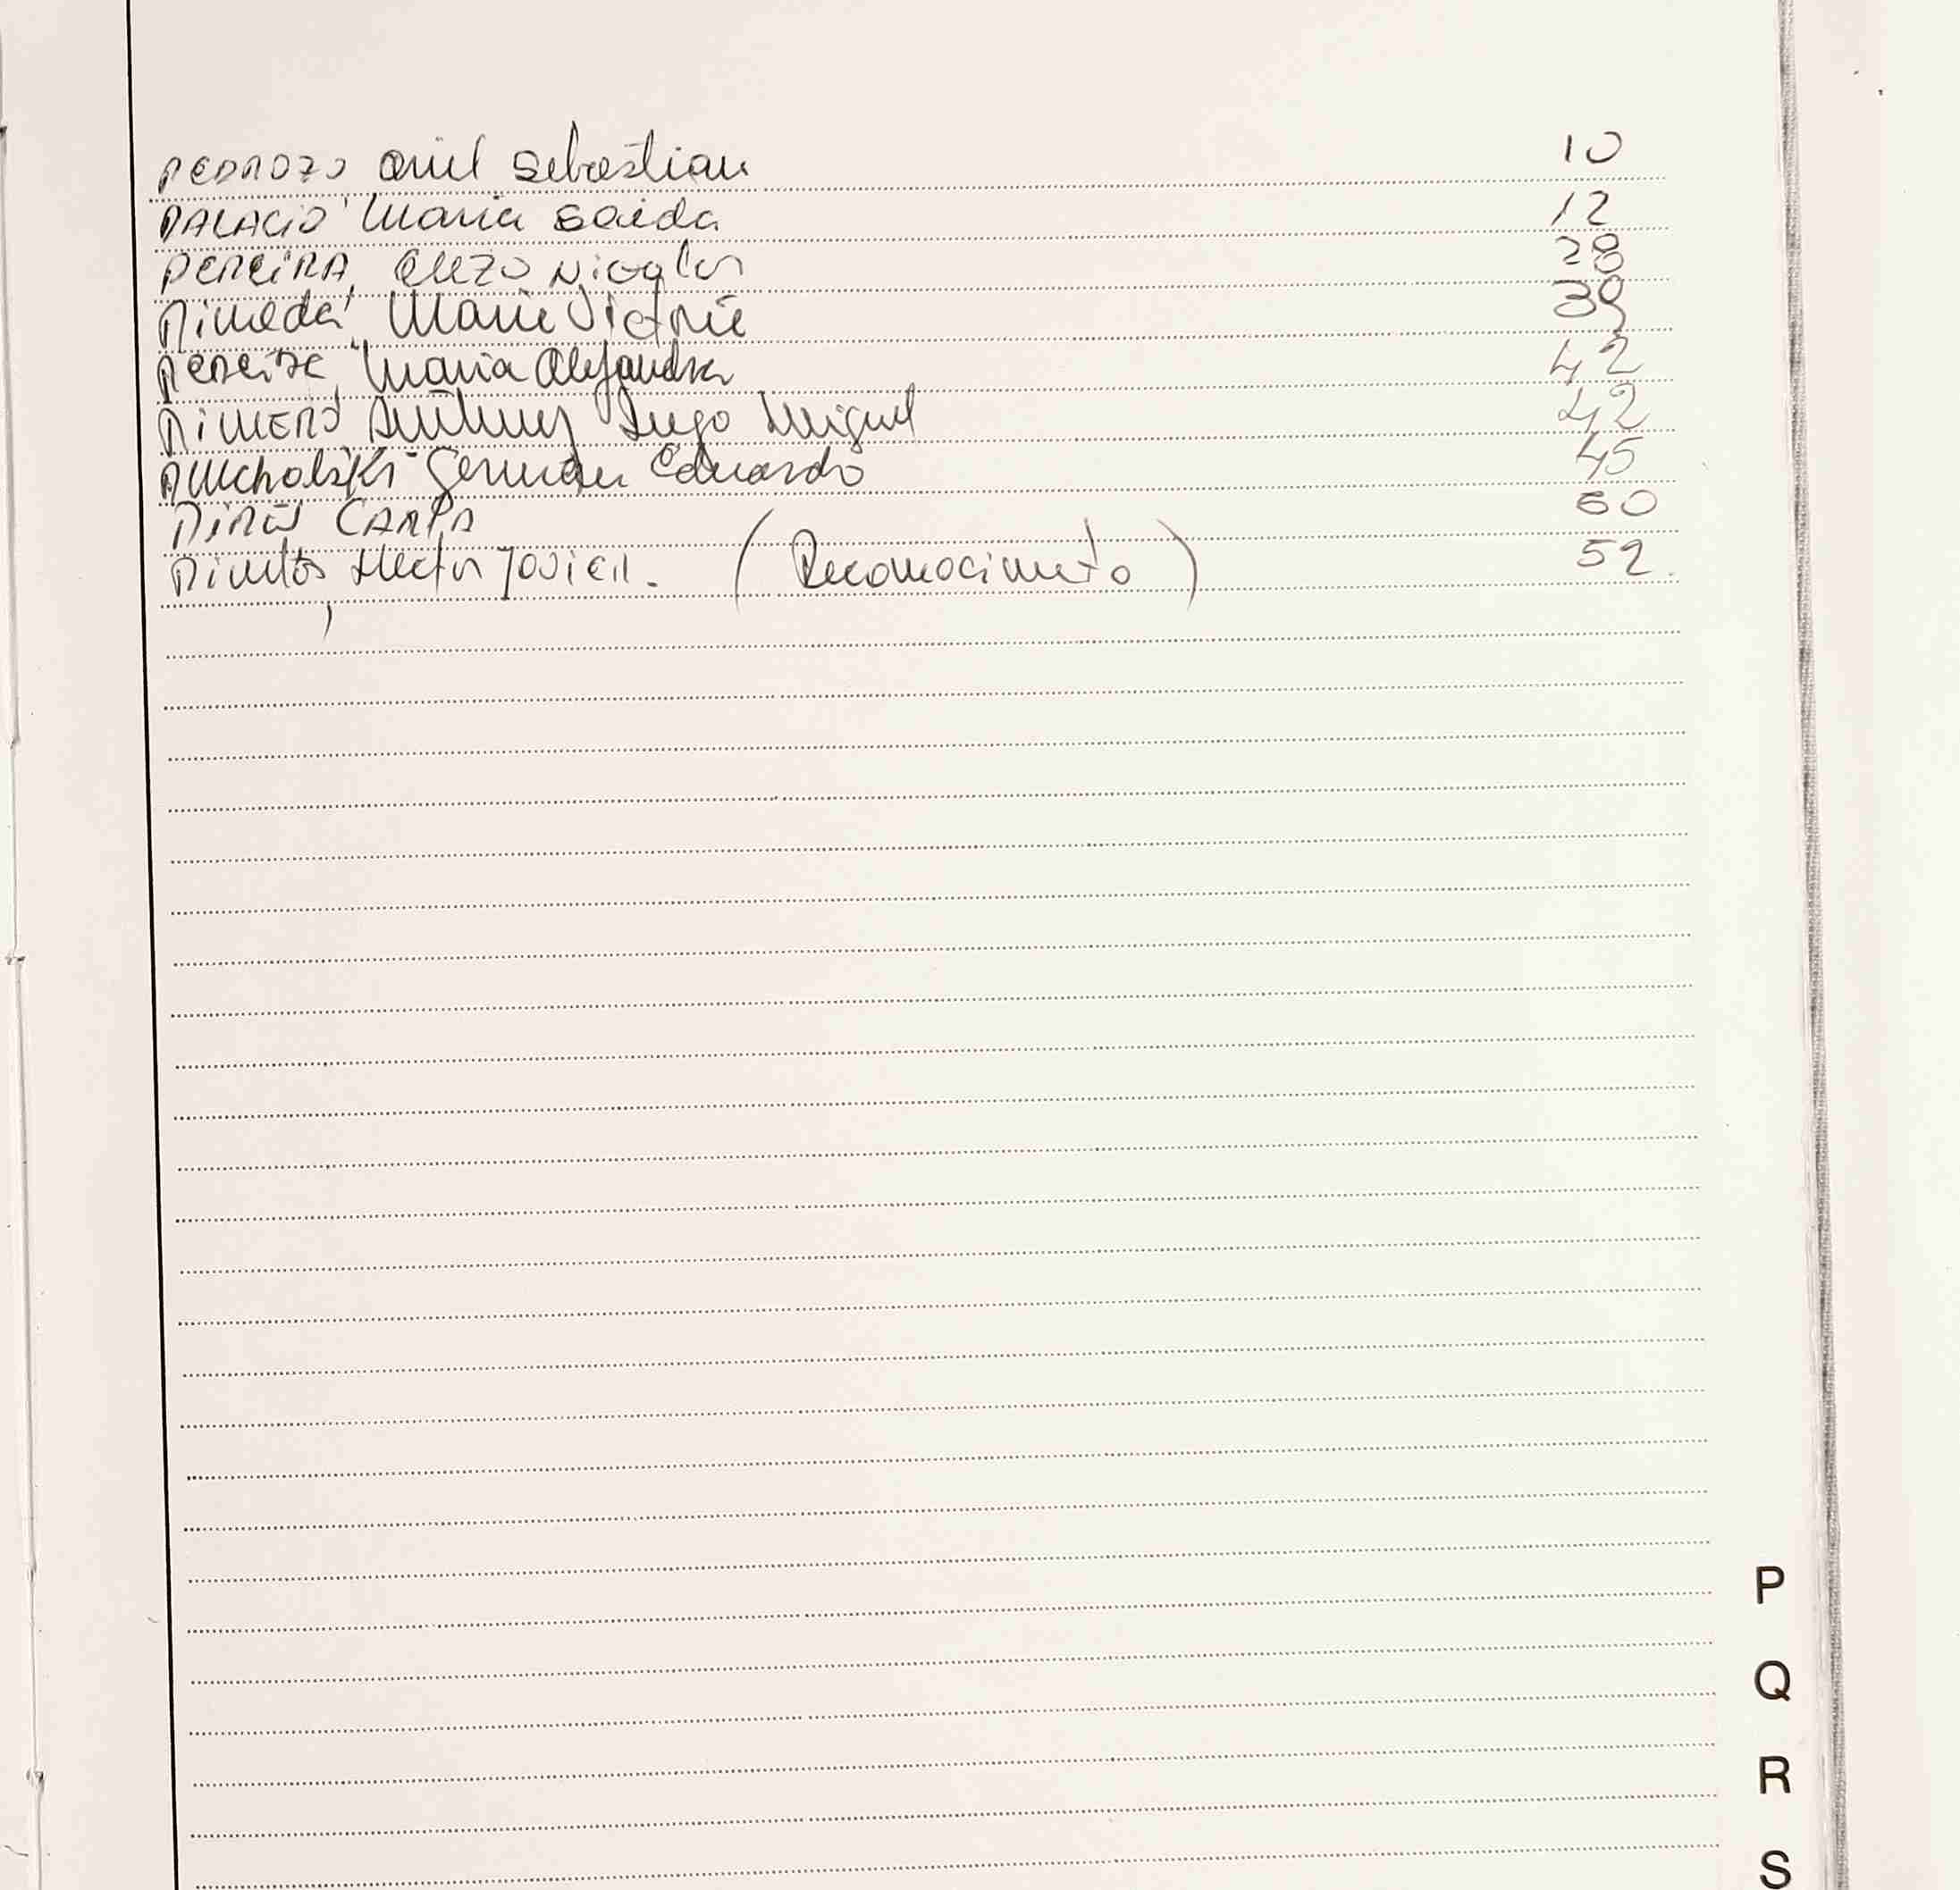 PEDROZO Ariel Sebastian 10
PALACIO Maria Saida 12
PEREIRA, Enzo Nicolas 28
Pineda Maria Victoria 39
Pereira, Maria Alejandra 42
Hugo Miguel 42
German Eduardo 45
CARLA 50
Hector Javier. (Reconocimiento) 52
P
Q
R
S